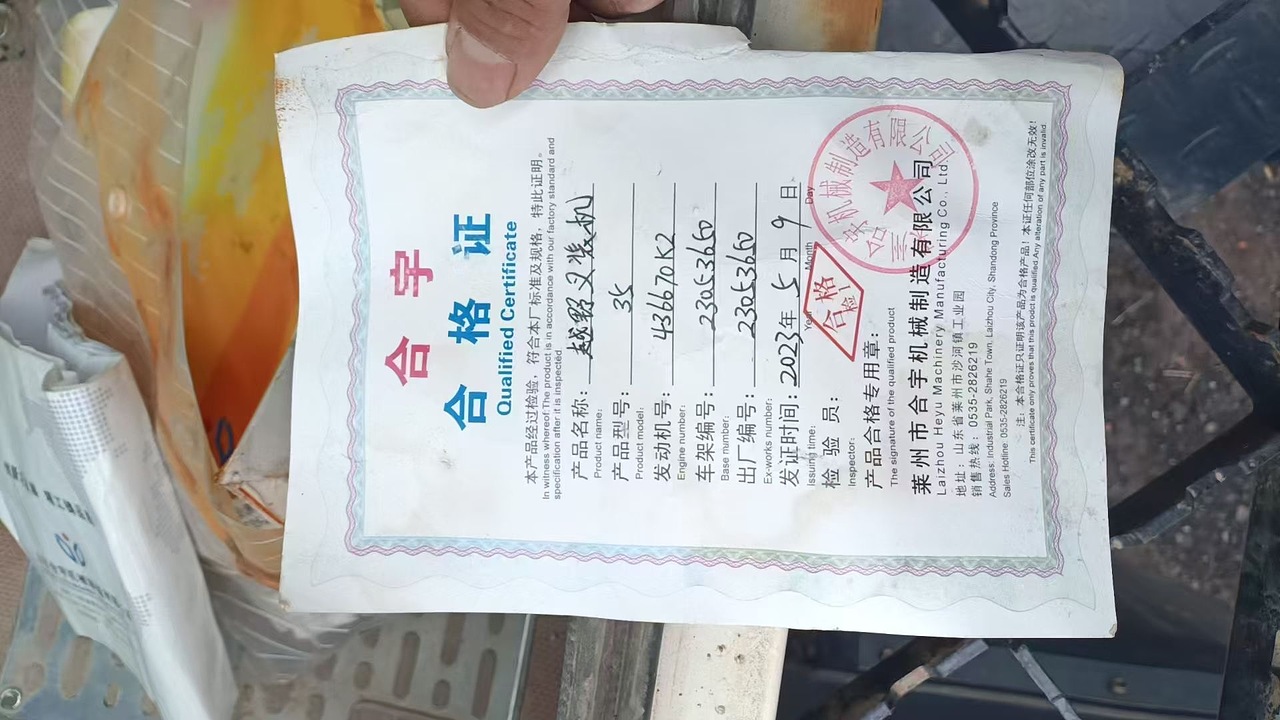 合宇
合格证
Qualified Certificate
本产品经过检验，符合本厂标准及规格，特此证明。
In witness whereof The product is in accordance with our factory standard and
specification after it is inspected
产品名称： 越野叉装机
Product name:
产品型号： 35
Product model:
发动机号： 436670K2
Engine number:
车架编号： 23053660
Base number:
出厂编号： 23053660
Ex-works number:
发证时间： 2023年 5月 9日
Issuing time: Year Month Day
检验员： 合格
Inspector:
产品合格专用章：
The signature of the qualified product
莱州市合宇机械制造有限公司
Laizhou Heyu Machinery Manufacturing Co., Ltd
地址：山东省莱州市沙河镇工业园
销售热线：0535-2826219
Address: Industrial Park, Shahe Town, Laizhou City, Shandong Province
Sales Hotline: 0535-2826219
注：本合格证只证明该产品为合格产品！本证任何部位涂改无效！
This certificate only proves that this prodct is qualified.Any alteration of any part is invalid